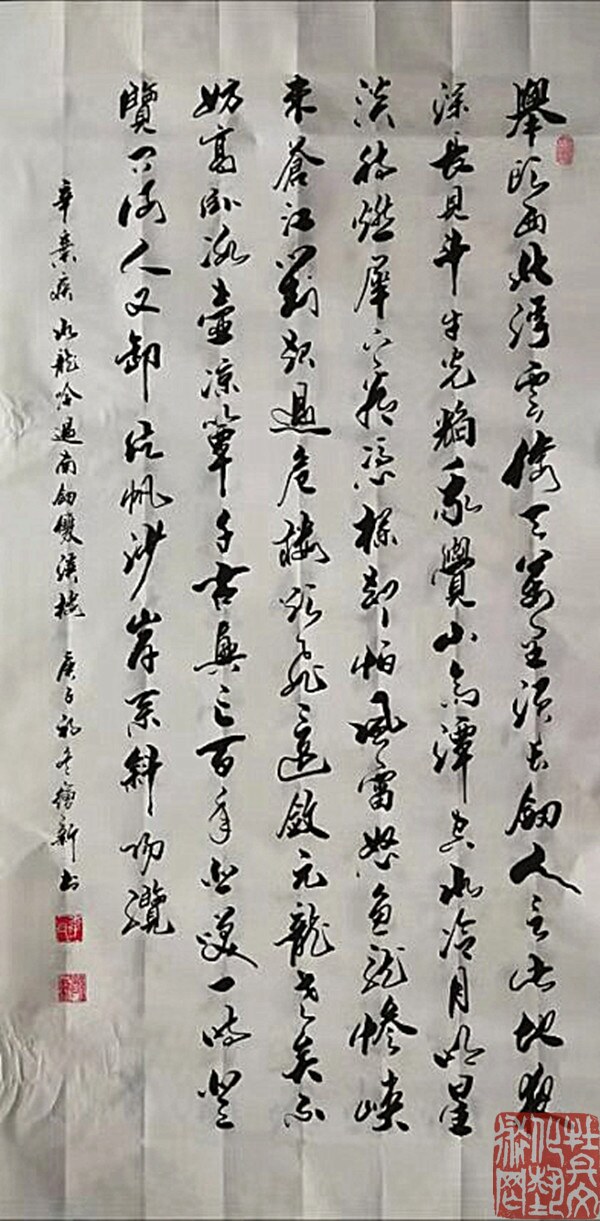 舉頭西北浮雲倚天萬里須長劍人言此地夜
深長見斗牛光焰我覺山高潭空水冷月明星
淡待燃犀下看憑欄却怕風雷怒魚龍慘峽
束蒼江對起過危樓欲飛還斂元龍老矣不
妨高卧冰壺涼簟千古興亡百年悲笑一時登
覽問何人又卸片帆沙岸系斜陽纜
辛棄疾水龍吟過南劍雙溪樓 庚子初冬德新書